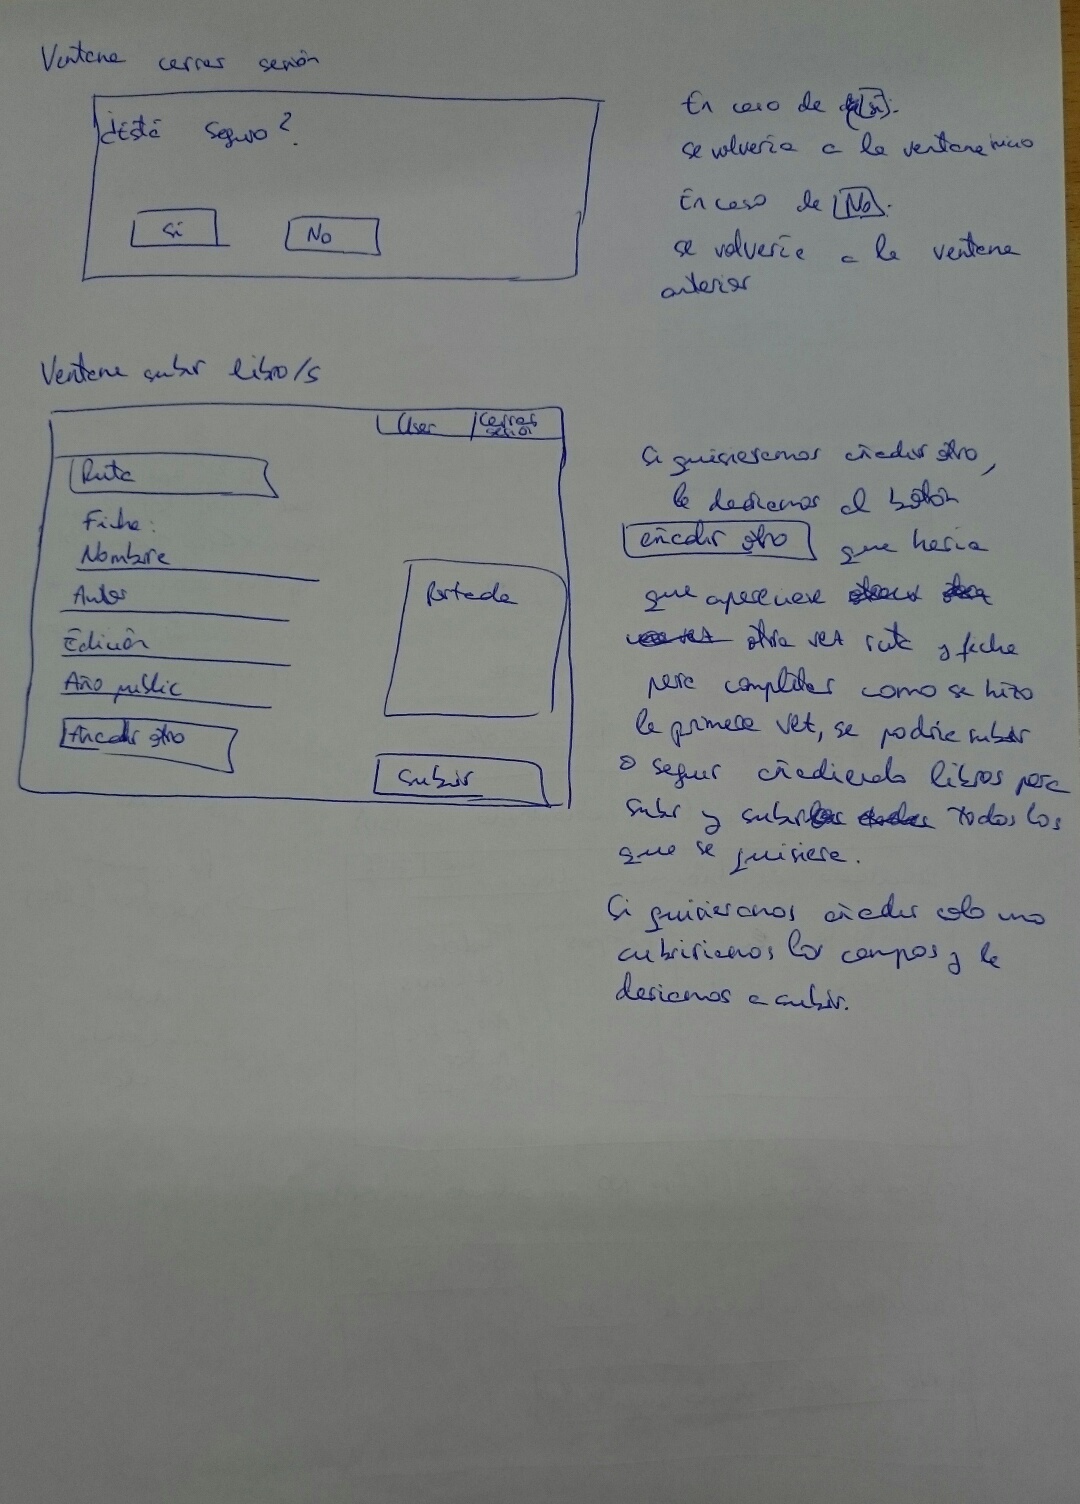 Ventana cerrar sesión
¿Está seguro?
Si
No
En caso de [Si]:
se volvería a la ventana inicio
En caso de [No]:
se volvería a la ventana
anterior
Ventana subir libro/s
User
Cerrar
sesión
Ruta
Ficha:
Nombre
Autor
Edición
Año public
Añadir otro
Portada
Subir
Si quisieramos añadir otro,
le dariamos al botón
añadir otro que haria
que apareciese
otra vez ruta y ficha
para completar como se hizo
la primera vez, se podría subir
o seguir añadiendo libros para
subir y subir todos los
que se quisiera.
Si quisieramos añadir solo uno
cubririamos los campos y le
dariamos a subir.